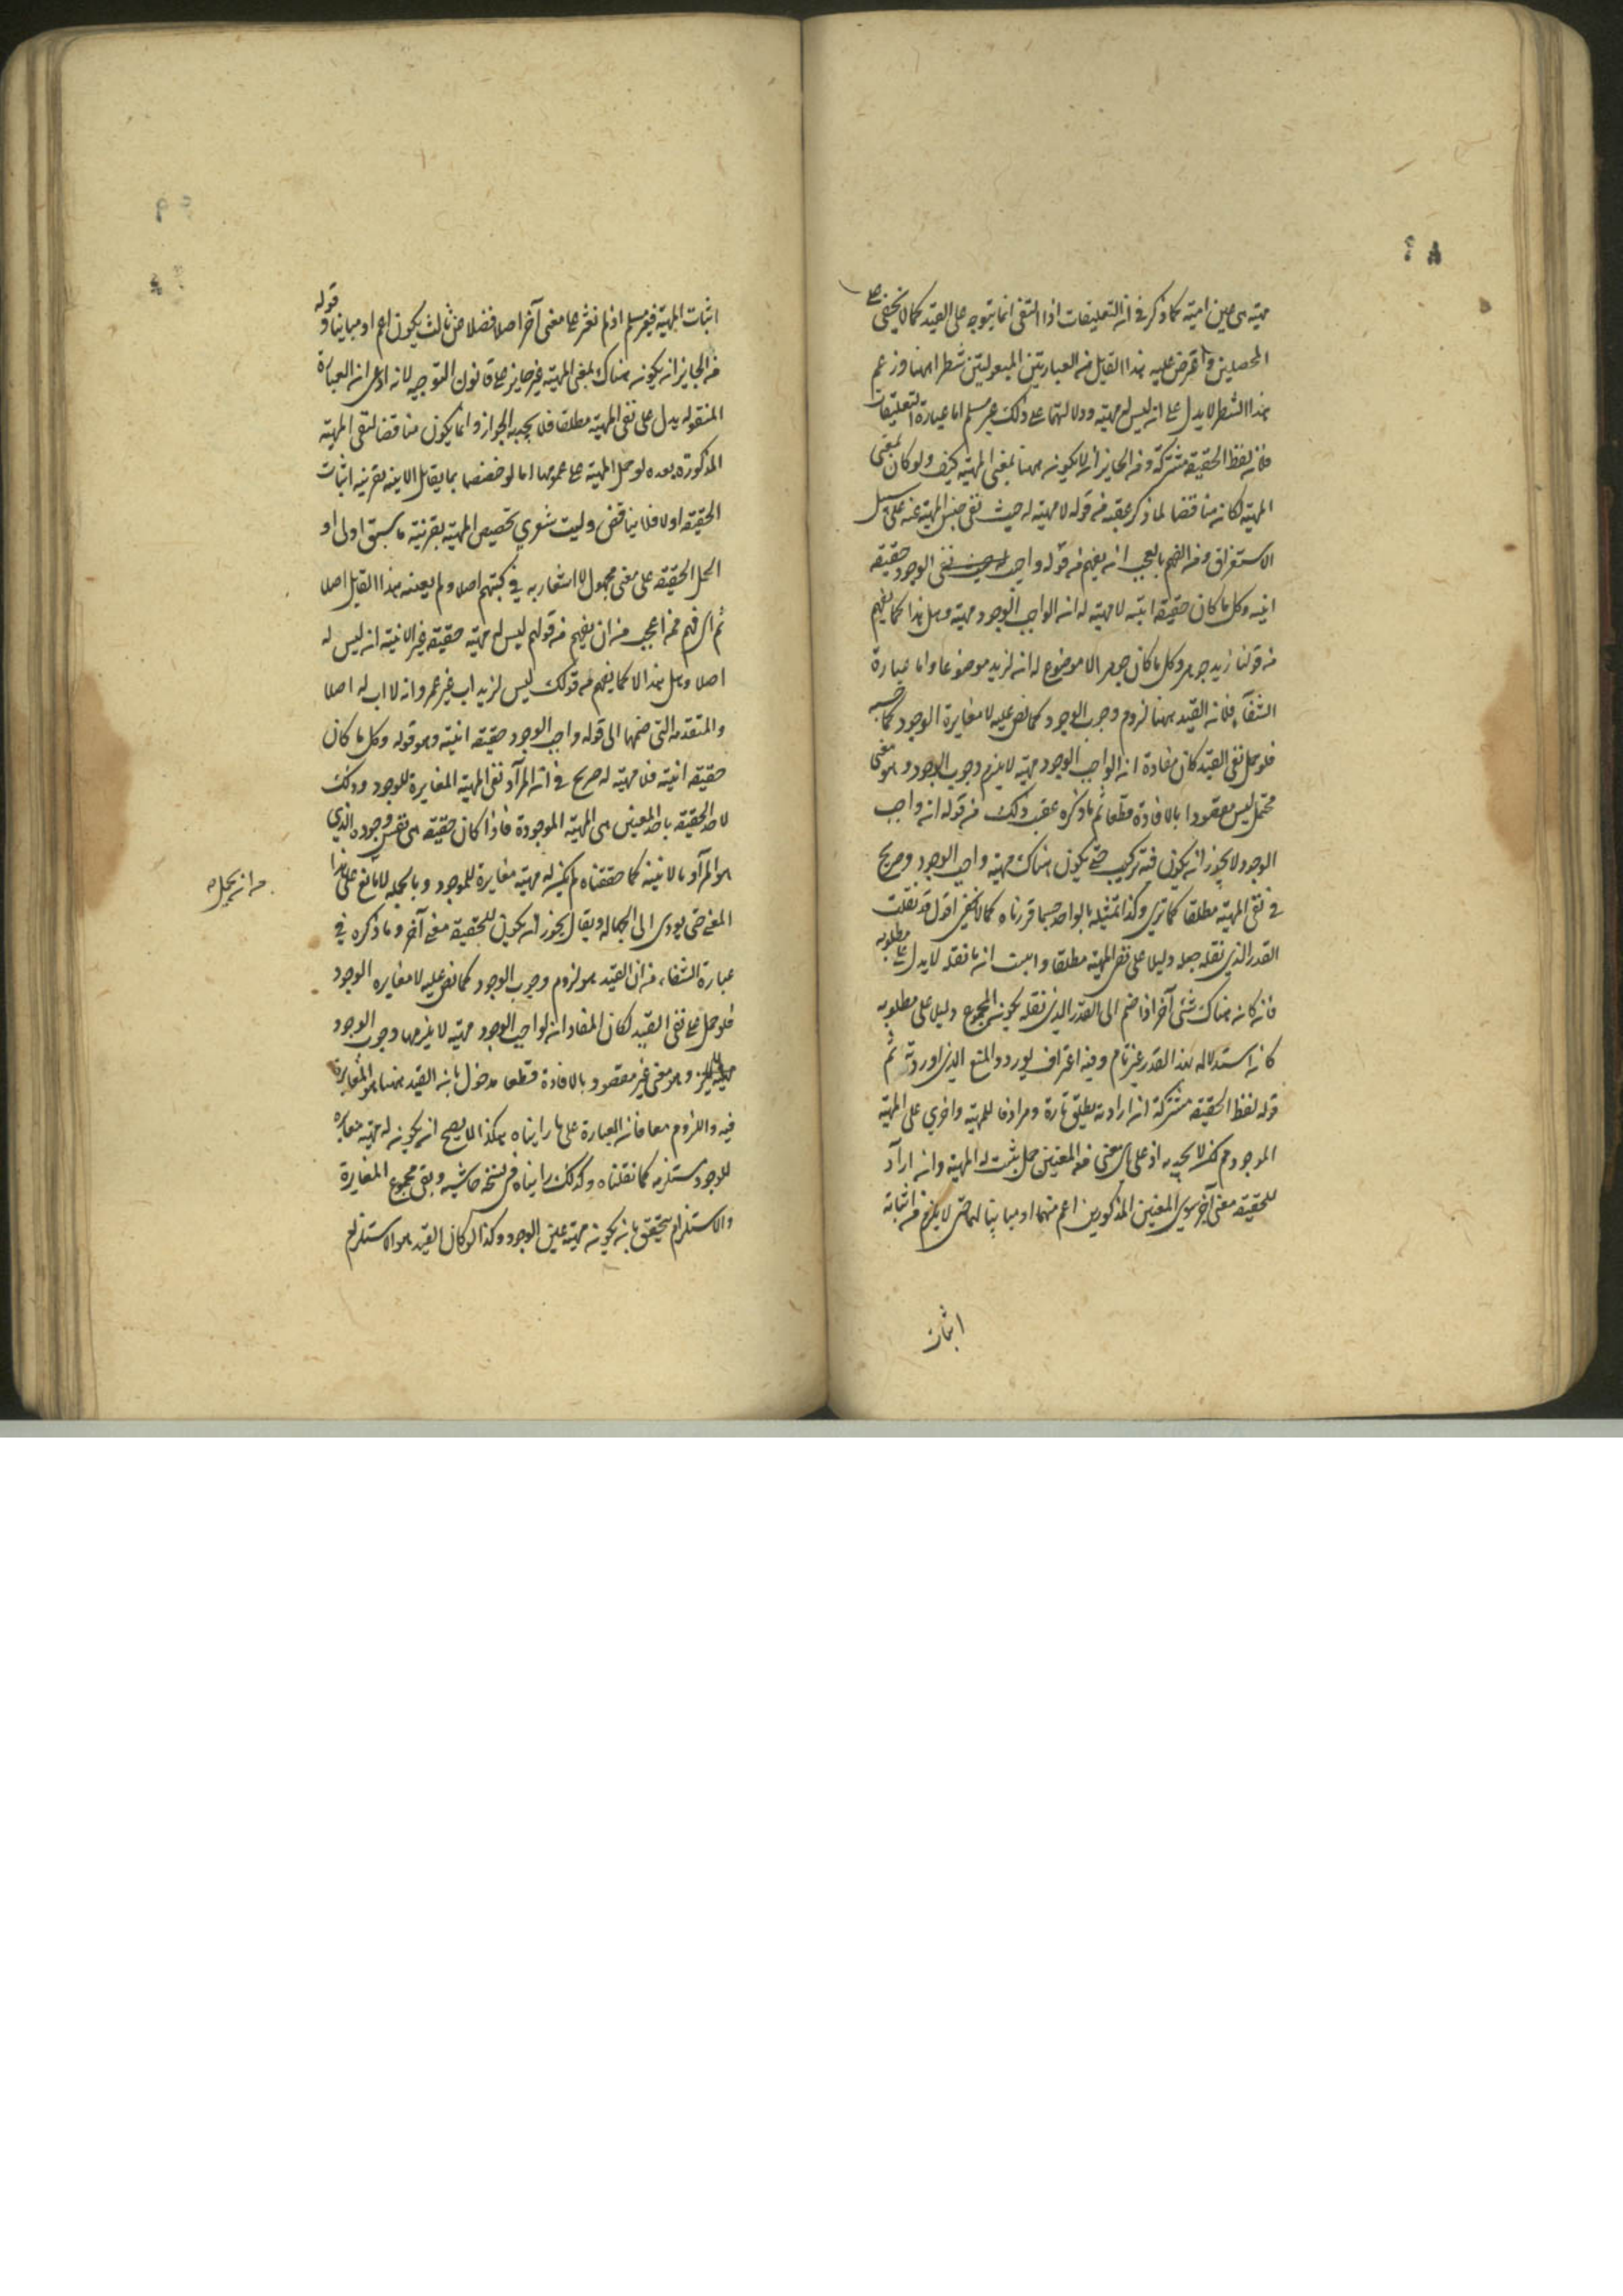 مهيته هى عين انيته كما ذكر في ان التعليقات اذ النفى انما يتوجه على القيد كما لا يخفى على
المحصلين واعترض عليه هذا القايل فى العبارتين المنقولتين شطرا منهما وزعم
هذا الشطر لا يدل على انه ليس له مهيته ودلالتهما على ذلك غير مسلم اما عبارة التعليقات
فلان لفظ الحقيقة مشتركة ومن الجايز ان لا يكون ههنا بمعنى المهية كيف ولو كان بمعنى
المهية لكان مناقضا لما ذكر عقبه من قوله لا مهية له حيث نفى جنس المهية عنه على سبيل
الاستغراق ومن الفهم بالعجب انه يفهم من قوله واجب نفى الوجود حقيقته
انيه وكل ما كان حقيقة انيته لا مهية له ان الواجب الوجود مهية وهل هذا كما يفهم
من قولنا زيد جوهر وكل ما كان جوهر الا موضوع له ان لزيد موضوعا واما عبارة
الشفآء فلان القيد ههنا لزوم وجوب الوجود كما نص عليه لا مغايرة الوجود كما حسبه
فلو حمل نفى القيد كان مفاده ان الواجب الوجود مهية لا يلزم وجوب الوجود وهو معنى
محتمل ليس مقصودا بالافادة قطعا ثم ما ذكره عقب ذلك من قوله ان واجب
الوجود لا يجوز ان يكون فيه تركيب حتى يكون هناك مهية واجب الوجود صريح
في نفى المهية مطلقا كما ترى وكذا تمثيله بالواحد حسبما قررناه كما لا يخفى اقول قد نقلت
القدر الذى نقله جعله دليلا على نفى المهية مطلقا واثبت ان ما نقله لا يدل على مطلوبه
فان كان هناك شئ آخر اذا ضم الى القدر الذى نقله يكون المجموع دليلا على مطلوبه
كان استدلاله بهذا القدر غير تام وفيه اعتراف بورود المنع الذى اوردته ثم
قوله لفظ الحقيقة مشتركة ان اراد به يطلق تارة ومرادفا للمهية واخرى على المهية
الموجودة لكن لا يجديه اذ على اى معنى من المعنيين حمل يثبت له المهية وان اراد
للحقيقة معنى آخر سوى المعنيين المذكورين اعم منهما او مباينا لهما حتى لا يلزم من اثباته
اثبات
اثبات المهية فغير مسلم اذ لم نعثر على معنى آخر اصلا فضلا من ثالث يكون اعم او مباينا وقوله
من الجايز ان يكون هناك بمعنى المهية غير جايز على قانون التوجيه لانه ادعى ان العبارة
المنقوله يدل على نفى المهية مطلقا فلا يجديه الجواز وانما يكون مناقضا لنفى المهية
المذكورة بعده لو حمل المهية على عمومها اما لو خصصها بما يقابل الانية بقرينة اثبات
الحقيقة اولا فلا يناقض وليت شعرى تخصيص المهية بقرينة ما سبق اولى او
الحمل الحقيقة على معنى مجهول لا اشعار به في كتبهم اصلا ولم يعينه هذا القايل اصلا
ثم اى فهم منه اعجب من ان يفهم من قولهم ليس له مهية حقيقة غير الانية انه ليس له
اصلا وهل هذا الا كما يفهم من قولك ليس لزيد اب غير عمرو انه لا اب له اصلا
والمقدمة التى ضمها الى قوله واجب الوجود حقيقة انيته وهو قوله وكل ما كان
حقيقة انيته فلا مهية له صريح في ان المراد نفى المهية المغايرة للوجود وذلك
لان الحقيقة باحد المعنيين هى المهية الموجودة فاذا كان حقيقة هى نفس وجوده الذى
هو المراد بالانية كما حققناه لم يكن له مهية مغايرة للوجود وبالجملة لا مانع على هذا
المعنى حتى يودى الى الجهالة ويقال يجوز ان يكون للحقيقة معنى آخر وما ذكره في
عبارة الشفاء من ان القيد هو لزوم وجوب الوجود كما نص عليه لا مغايرة الوجود
فلو حمل على نفى القيد لكان المفاد ان لواجب الوجود مهية لا يلزمها وجوب الوجود
وهو معنى غير مقصود بالافادة قطعا مدخول بان القيد ههنا هو المغايرة
فيه واللزوم معا فان العبارة على ما رايناه هكذا لا يصح ان يكون له مهية مغايرة
للوجود مستلزمه كما نقلناه وكذلك رايناه فى نسخة حاشيه ونفى مجموع المغايرة
والاستلزام يتحقق بان يكون مهية عين الوجود وكذا لو كان القيد هو الاستلزام